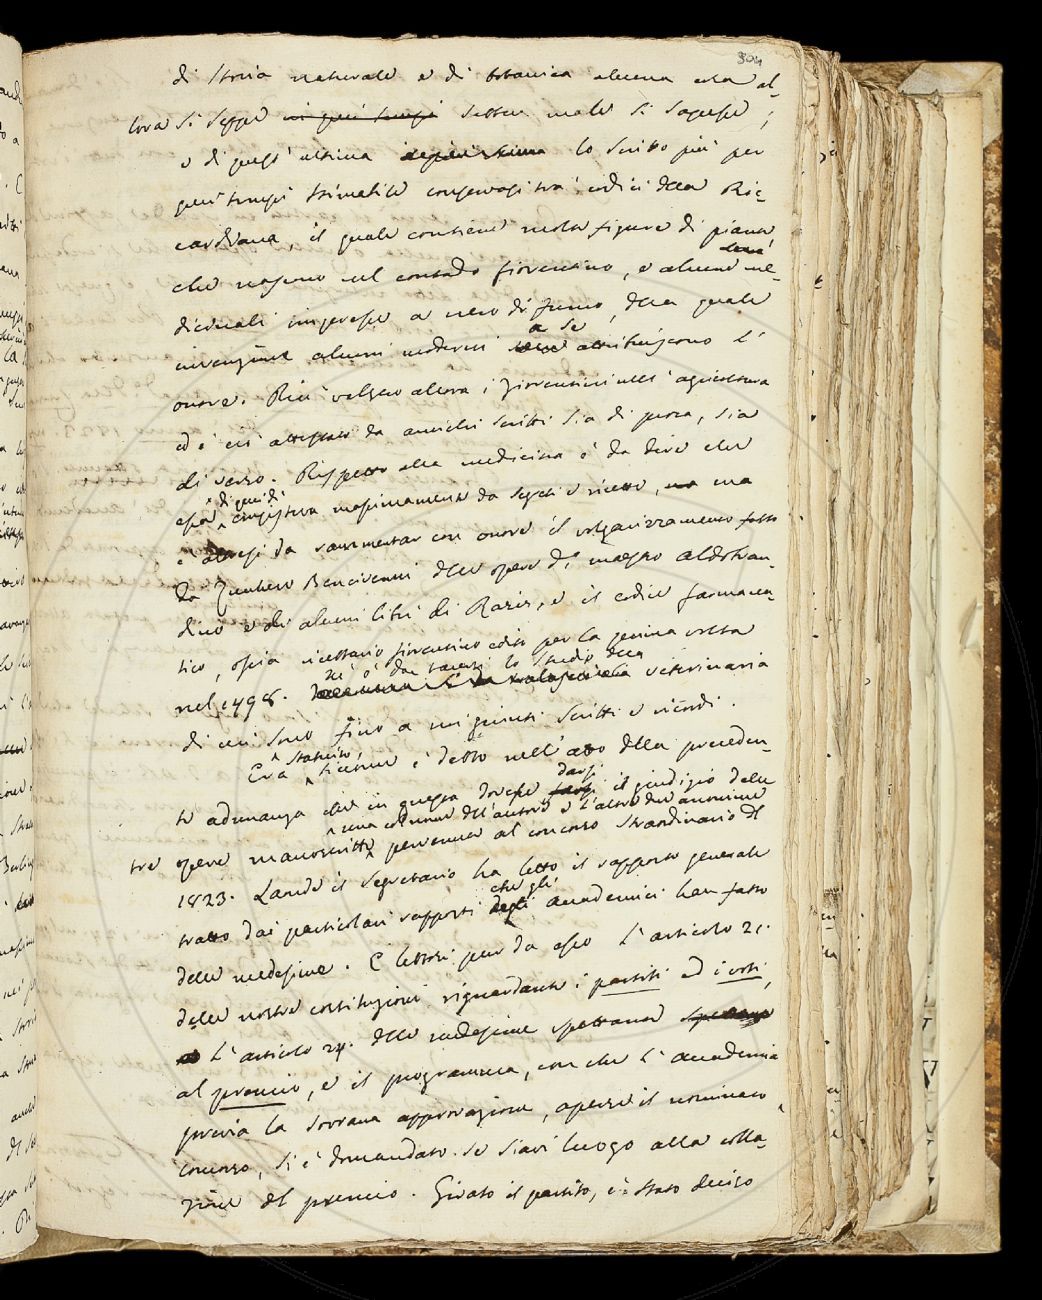 304
di storia naturale e di botanica alcuna cosa al-
lora si seppe in quei tempi sebben male si sapesse;
e di quest'ultima lo scritto più per
quei tempi stimabile conservasi tra i codici della Ric-
cardiana, il quale contiene molte figure di piante
che nascono nel contado fiorentino, e alcune me-
dicinali impresse a nero di fumo, della quale
invenzione alcuni moderni a se attribuiscono l'
onore. Più valsero allora i Fiorentini nell'agricoltura
ed è ciò attestato da antichi scritti sia di prosa, sia
di verso. Rispetto alla medicina è da dire che
essa di quei dì consisteva massimamente da segreti e ricette, ma
è da rammentar con onore il volgarizzamento fatto
da Zucchero Bencivenni delle opere di maestro Aldobran-
dino e di alcuni libri di Rasis, e il codice farmaceu-
tico, ossia ricettario fiorentino edito per la prima volta
nel 1498. Nè è da tacersi lo studio della veterinaria
di cui sono fino a noi giunti scritti e ricordi.
Era stabilito, siccome è detto nell'atto della preceden-
te adunanza che in questa dovesse darsi il giudizio delle
tre opere manoscritte, una col nome dell'autore e l'altre due anonime pervenute al concorso straordinario del
1823. Laonde il segretario ha letto il rapporto generale
tratto dai particolari rapporti che gli accademici han fatto
delle medesime. E lettosi pur da esso l'articolo 21.
delle nostre costituzioni riguardante i partiti ed i voti,
l'articolo 24. delle medesime spettante
al premio, e il programma, con che l'accademia
previa la sovrana approvazione, aperse il nominato
concorso, si è domandato se siavi luogo alla colla-
zione del premio. Girato il partito, è stato deciso